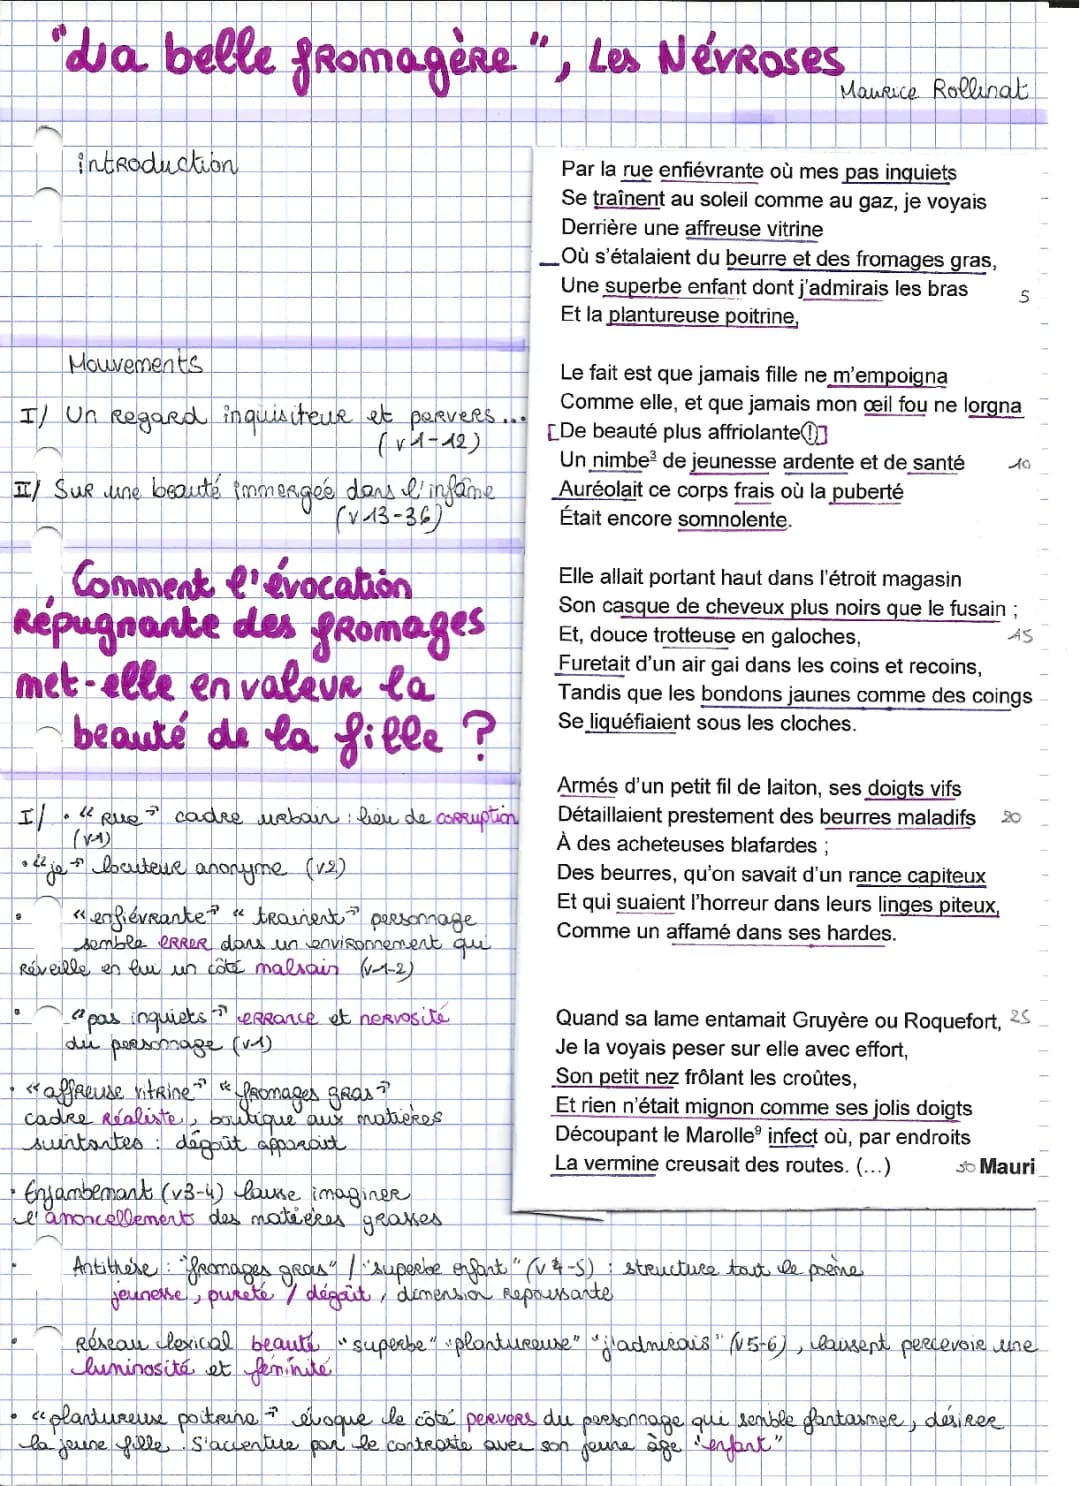 "La belle fromagère", Les Névroses
Maurice Rollinat
introduction
Mouvements
I/ Un regard inquisiteur et pervers...
(v1-12)
II/ Sur une beauté immergée dans l'infâme
(v13-36)
Comment l'évocation
répugnante des fromages
met-elle en valeur la
beauté de la fille ?
Par la rue enfiévrante où mes pas inquiets
Se traînent au soleil comme au gaz, je voyais
Derrière une affreuse vitrine
Où s'étalaient du beurre et des fromages gras,
Une superbe enfant dont j'admirais les bras 5
Et la plantureuse poitrine.
Le fait est que jamais fille ne m'empoigna
Comme elle, et que jamais mon œil fou ne lorgna
[De beauté plus affriolante !]
Un nimbe³ de jeunesse ardente et de santé 10
Auréolait ce corps frais où la puberté
Était encore somnolente.
Elle allait portant haut dans l'étroit magasin
Son casque de cheveux plus noirs que le fusain ;
Et, douce trotteuse en galoches, 15
Furetait d'un air gai dans les coins et recoins,
Tandis que les bondons jaunes comme des coings
Se liquéfiaient sous les cloches.
Armés d'un petit fil de laiton, ses doigts vifs
Détaillaient prestement des beurres maladifs 20
À des acheteuses blafardes ;
Des beurres, qu'on savait d'un rance capiteux
Et qui suaient l'horreur dans leurs linges piteux,
Comme un affamé dans ses hardes.
Quand sa lame entamait Gruyère ou Roquefort, 25
Je la voyais peser sur elle avec effort,
Son petit nez frôlant les croûtes,
Et rien n'était mignon comme ses jolis doigts
Découpant le Marolle⁹ infect où, par endroits
La vermine creusait des routes. (...) 30 Mauri
I/ • "rue" cadre urbain : lieu de corruption
(v1)
• "je" locuteur anonyme (v2)
• "enfiévrante" "trainent" personnage
semble errer dans un environnement qui
réveille en lui un côté malsain (v1-2)
• "pas inquiets" errance et nervosité
du personnage (v1)
• "affreuse vitrine" "fromages gras"
cadre réaliste, boutique aux matières
suintantes : dégoût apparait
• Enjambemant (v3-4) laisse imaginer
l'amoncellements des matières grasses
• Antithèse : "fromages gras" / "superbe enfant" (v4-5) : structure tout le poème
jeunesse, pureté / dégoût, dimension repoussante
• Réseau lexical beauté "superbe" "plantureuse" "j'admirais" (v5-6), laissent percevoir une
luminosité et féminité
• "plantureuse poitrine" évoque le côté pervers du personnage qui semble fantasmer, désirer
la jeune fille. S'accentue par le contraste avec son jeune âge "enfant"